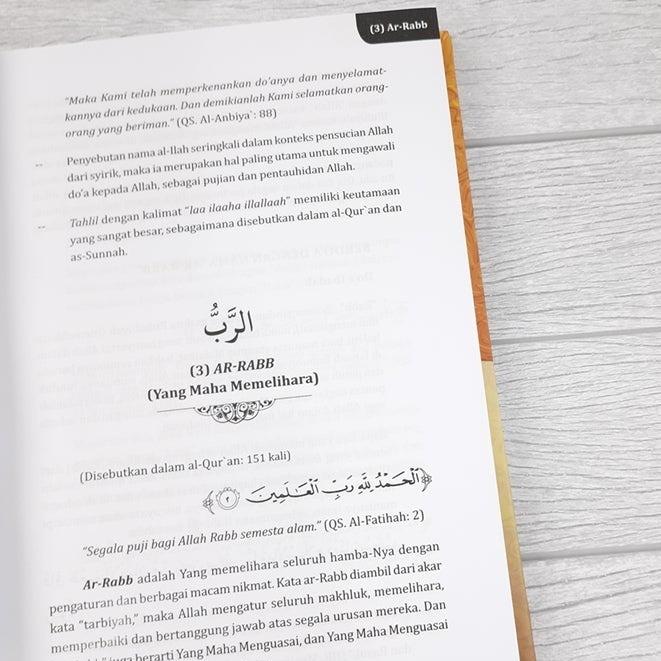 (3) Ar-Rabb
"Maka Kami telah memperkenankan do'anya dan menyelamat-
kannya dari kedukaan. Dan demikianlah Kami selamatkan orang-
orang yang beriman." (QS. Al-Anbiya`: 88)
-- Penyebutan nama al-Ilah seringkali dalam konteks pensucian Allah
dari syirik, maka ia merupakan hal paling utama untuk mengawali
do'a kepada Allah, sebagai pujian dan pentauhidan Allah.
-- Tahlil dengan kalimat "laa ilaaha illallaah" memiliki keutamaan
yang sangat besar, sebagaimana disebutkan dalam al-Qur`an dan
as-Sunnah.
الرَّبُّ
(3) AR-RABB
(Yang Maha Memelihara)
(Disebutkan dalam al-Qur`an: 151 kali)
﴿ٱلۡحَمۡدُ لِلَّهِ رَبِّ ٱلۡعَٰلَمِينَ ٢﴾
"Segala puji bagi Allah Rabb semesta alam." (QS. Al-Fatihah: 2)
Ar-Rabb adalah Yang memelihara seluruh hamba-Nya dengan
pengaturan dan berbagai macam nikmat. Kata ar-Rabb diambil dari akar
kata "tarbiyah," maka Allah mengatur seluruh makhluk, memelihara,
memperbaiki dan bertanggung jawab atas segala urusan mereka. Dan
juga berarti Yang Maha Menguasai, dan Yang Maha Menguasai